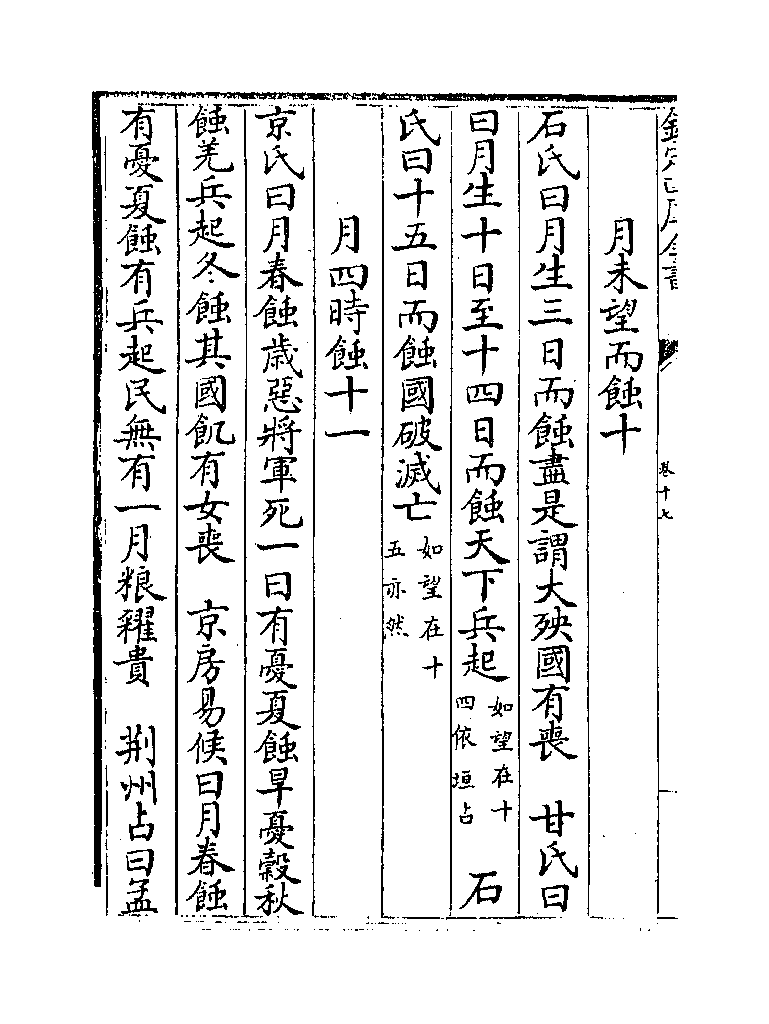 月未望而蝕十
石氏曰月生三日而蝕盡是謂大殃國有喪　甘氏曰
曰月生十日至十四日而蝕天下兵起如望在十四依垣占　石
氏曰十五日而蝕國破滅亡如望在十五亦然
月四時蝕十一
京氏曰月春蝕歳惡將軍死一曰有憂夏蝕旱憂穀秋
蝕羌兵起冬蝕其國飢有女喪　京房易候曰月春蝕
有憂夏蝕有兵起民無有一月粮糴貴　荆州占曰孟
卷十七